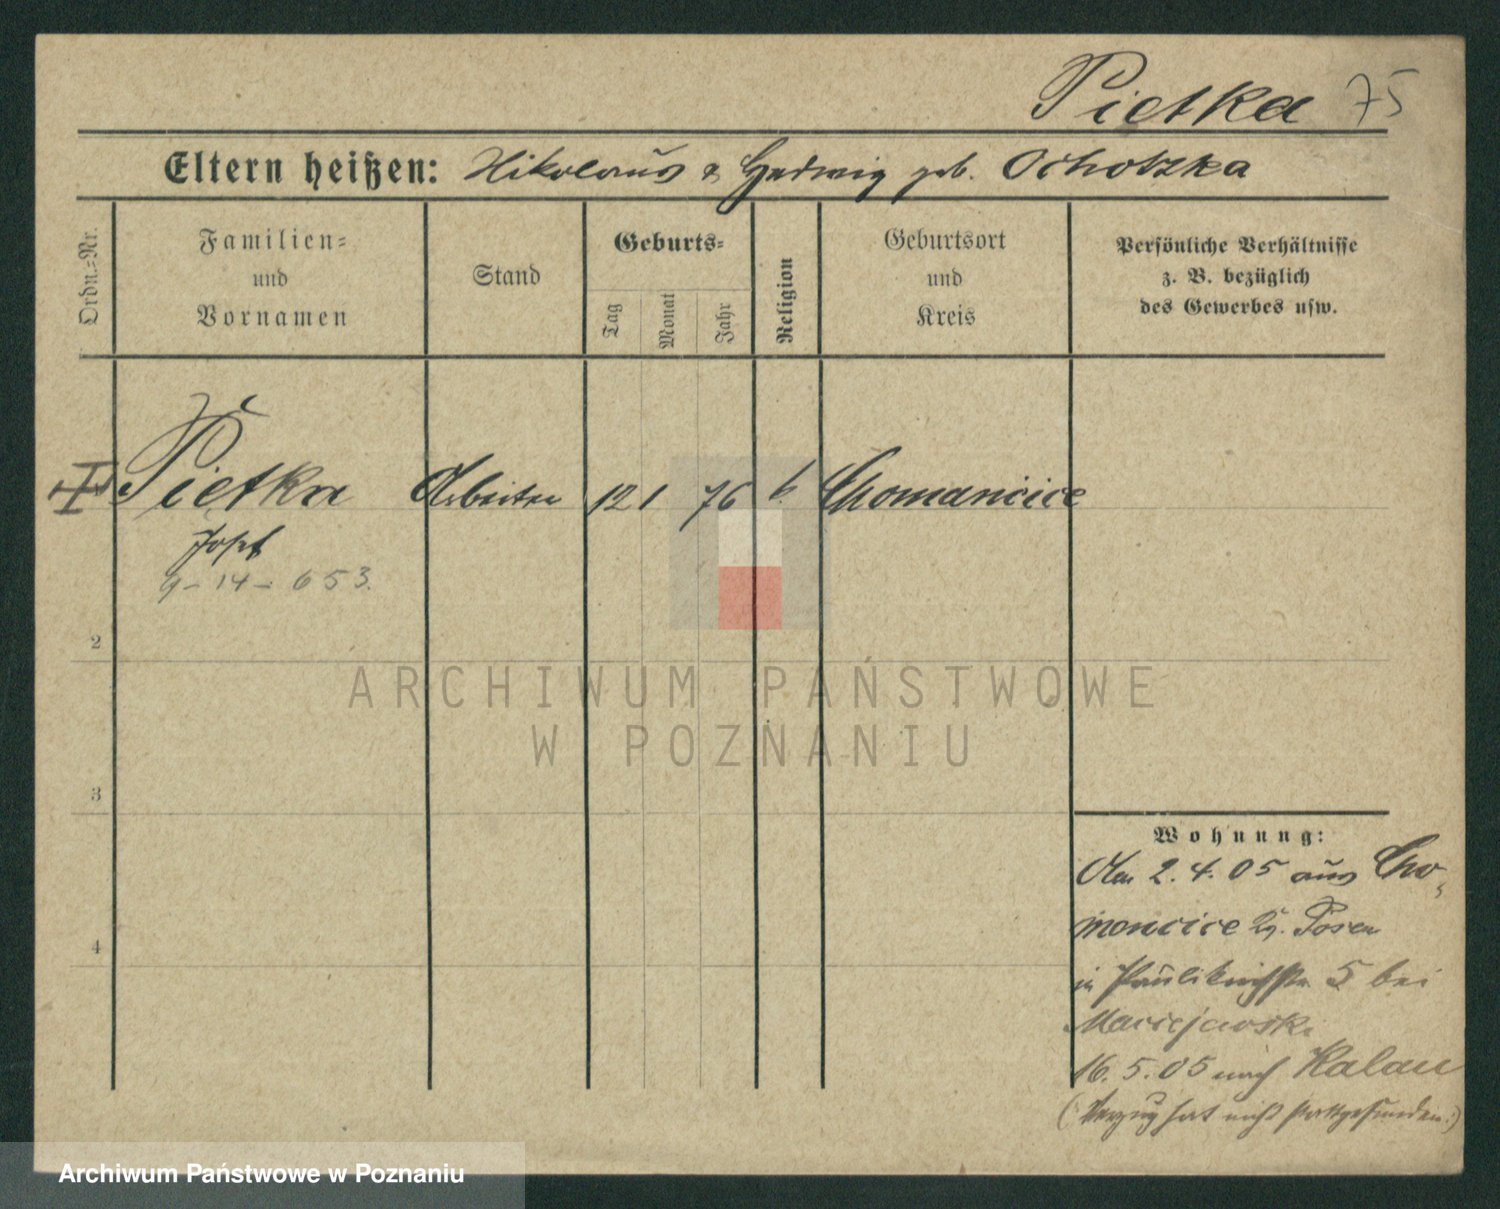 Pietka 75
Eltern heißen: Nikolaus & Hedwig geb. Ochotzka
Ordn.=Nr.
Familien=
und
Vornamen
Stand
Geburts=
Tag
Monat
Jahr
Religion
Geburtsort
und
Kreis
Persönliche Verhältnisse
z. B. bezüglich
des Gewerbes usw.
I Pietka Arbeiter 12 1 76 k Chomancice
Josef
9-14-653.
2
3
4
Wohnung:
Am 2.4.05 aus Cho-
mencice Kr. Posen
in Paulikirchstr 5 bei
Maciejewski
16.5.05 nach Kalau
(Verzug hat nicht stattgefunden.)
ARCHIWUM PAŃSTWOWE
W POZNANIU
Archiwum Państwowe w Poznaniu